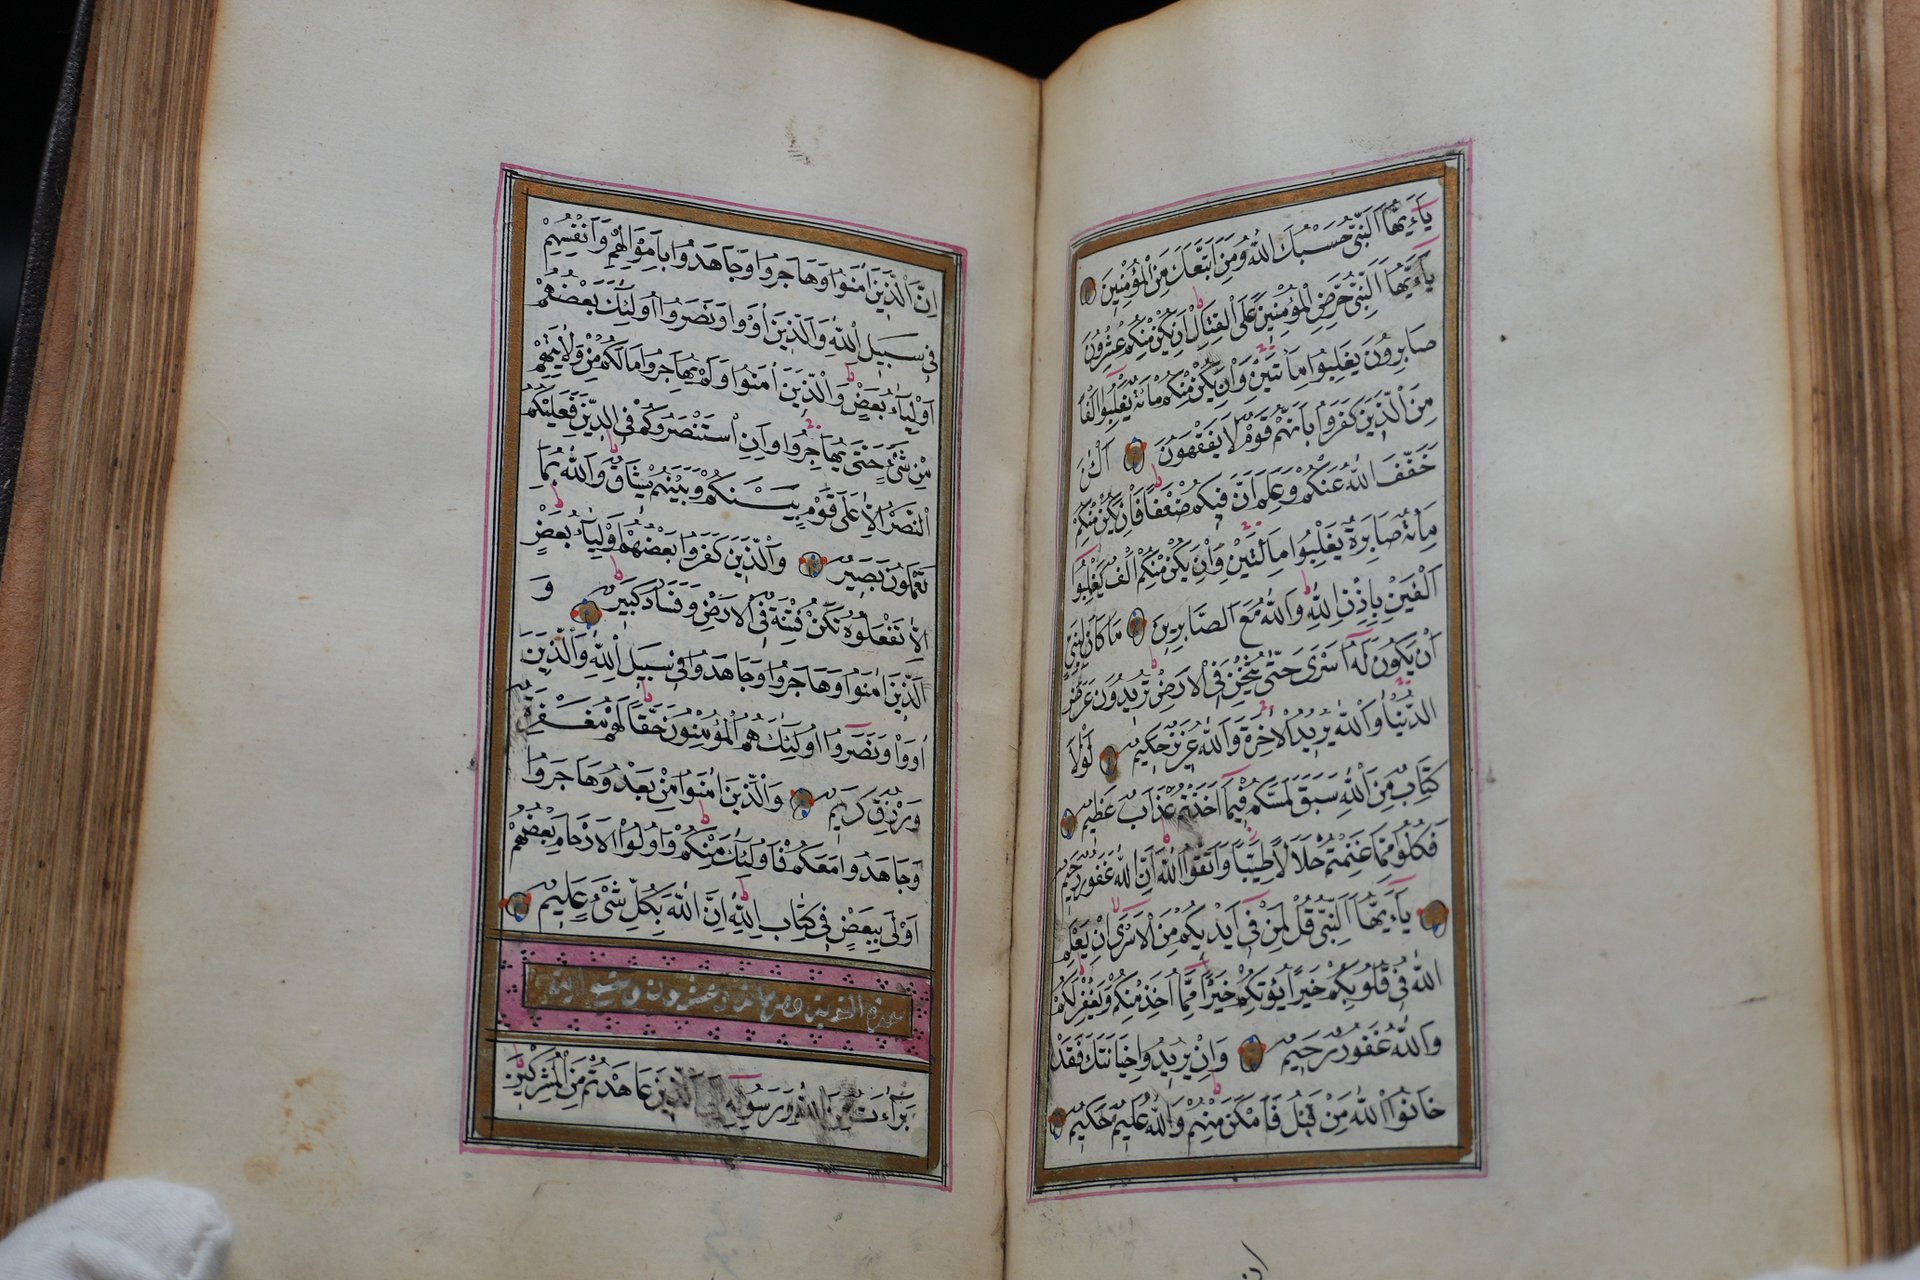 يَاأَيُّهَا النَّبِيُّ حَسْبُكَ اللّٰهُ وَمَنِ اتَّبَعَكَ مِنَ الْمُؤْمِنِينَ
يَاأَيُّهَا النَّبِيُّ حَرِّضِ الْمُؤْمِنِينَ عَلَى الْقِتَالِ اِنْ يَكُنْ مِنْكُمْ عِشْرُونَ
صَابِرُونَ يَغْلِبُوا مِائَتَيْنِ وَاِنْ يَكُنْ مِنْكُمْ مِائَةٌ يَغْلِبُوا اَلْفًا
مِنَ الَّذِينَ كَفَرُوا بِاَنَّهُمْ قَوْمٌ لَا يَفْقَهُونَ اَلْـٰٔنَ
خَفَّفَ اللّٰهُ عَنْكُمْ وَعَلِمَ اَنَّ فِيكُمْ ضَعْفًا فَاِنْ يَكُنْ مِنْكُمْ
مِائَةٌ صَابِرَةٌ يَغْلِبُوا مِائَتَيْنِ وَاِنْ يَكُنْ مِنْكُمْ اَلْفٌ يَغْلِبُوا
اَلْفَيْنِ بِاِذْنِ اللّٰهِ وَاللّٰهُ مَعَ الصَّابِرِينَ مَا كَانَ لِنَبِيٍّ
اَنْ يَكُونَ لَهُ اَسْرَى حَتّٰى يُثْخِنَ فِي الْاَرْضِ تُرِيدُونَ عَرَضَ
الدُّنْيَا وَاللّٰهُ يُرِيدُ الْاٰخِرَةَ وَاللّٰهُ عَزِيزٌ حَكِيمٌ لَوْلَا
كِتَابٌ مِنَ اللّٰهِ سَبَقَ لَمَسَّكُمْ فِيمَا اَخَذْتُمْ عَذَابٌ عَظِيمٌ
فَكُلُوا مِمَّا غَنِمْتُمْ حَلَالًا طَيِّبًا وَاتَّقُوا اللّٰهَ اِنَّ اللّٰهَ غَفُورٌ رَحِيمٌ
يَاأَيُّهَا النَّبِيُّ قُلْ لِمَنْ فِي اَيْدِيكُمْ مِنَ الْاَسْرَى اِنْ يَعْلَمِ
اللّٰهُ فِي قُلُوبِكُمْ خَيْرًا يُؤْتِكُمْ خَيْرًا مِمَّا اُخِذَ مِنْكُمْ وَيَغْفِرْ لَكُمْ
وَاللّٰهُ غَفُورٌ رَحِيمٌ وَاِنْ يُرِيدُوا خِيَانَتَكَ فَقَدْ
خَانُوا اللّٰهَ مِنْ قَبْلُ فَاَمْكَنَ مِنْهُمْ وَاللّٰهُ عَلِيمٌ حَكِيمٌ
ان
اِنَّ الَّذِينَ اٰمَنُوا وَهَاجَرُوا وَجَاهَدُوا بِاَمْوَالِهِمْ وَاَنْفُسِهِمْ
فِي سَبِيلِ اللّٰهِ وَالَّذِينَ اٰوَوْا وَنَصَرُوا اُولٰئِكَ بَعْضُهُمْ
اَوْلِيَاءُ بَعْضٍ وَالَّذِينَ اٰمَنُوا وَلَمْ يُهَاجِرُوا مَا لَكُمْ مِنْ وَلَايَتِهِمْ
مِنْ شَيْءٍ حَتّٰى يُهَاجِرُوا وَاِنِ اسْتَنْصَرُوكُمْ فِي الدِّينِ فَعَلَيْكُمُ
النَّصْرُ اِلَّا عَلٰى قَوْمٍ بَيْنَكُمْ وَبَيْنَهُمْ مِيثَاقٌ وَاللّٰهُ بِمَا
تَعْمَلُونَ بَصِيرٌ وَالَّذِينَ كَفَرُوا بَعْضُهُمْ اَوْلِيَاءُ بَعْضٍ
اِلَّا تَفْعَلُوهُ تَكُنْ فِتْنَةٌ فِي الْاَرْضِ وَفَسَادٌ كَبِيرٌ وَ
الَّذِينَ اٰمَنُوا وَهَاجَرُوا وَجَاهَدُوا فِي سَبِيلِ اللّٰهِ وَالَّذِينَ
اٰوَوْا وَنَصَرُوا اُولٰئِكَ هُمُ الْمُؤْمِنُونَ حَقًّا لَهُمْ مَغْفِرَةٌ
وَرِزْقٌ كَرِيمٌ وَالَّذِينَ اٰمَنُوا مِنْ بَعْدُ وَهَاجَرُوا
وَجَاهَدُوا مَعَكُمْ فَاُولٰئِكَ مِنْكُمْ وَاُولُوا الْاَرْحَامِ بَعْضُهُمْ
اَوْلٰى بِبَعْضٍ فِي كِتَابِ اللّٰهِ اِنَّ اللّٰهَ بِكُلِّ شَيْءٍ عَلِيمٌ
سورة التوبة
بَرَاءَةٌ مِنَ اللّٰهِ وَرَسُولِهِ اِلَى الَّذِينَ عَاهَدْتُمْ مِنَ الْمُشْرِكِينَ